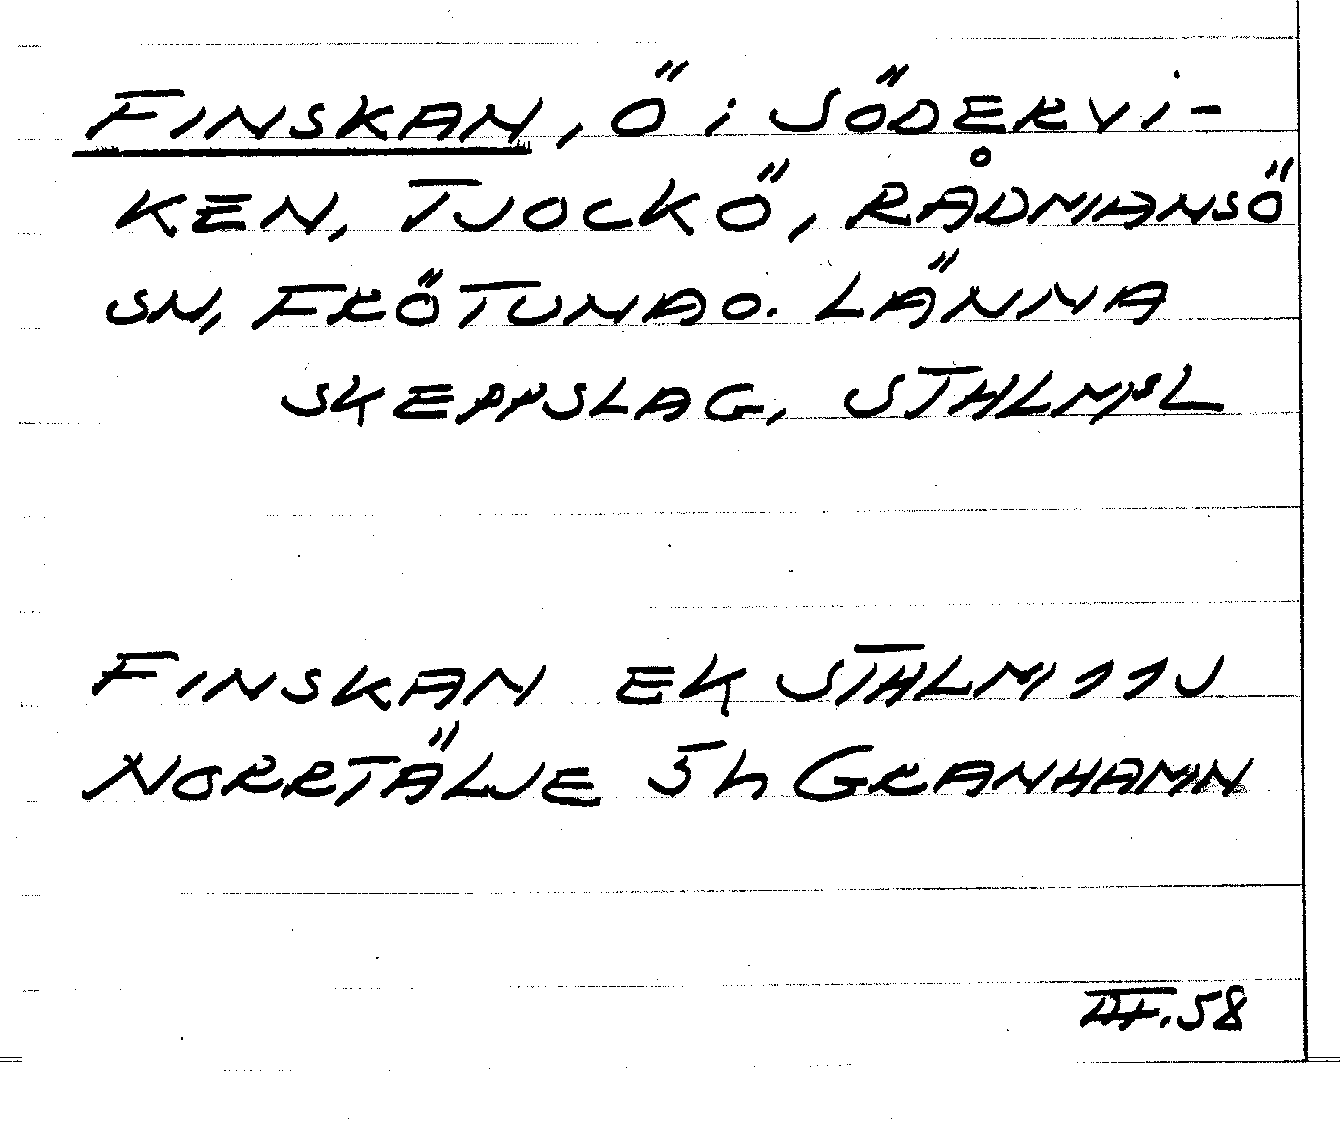 FINSKAN, Ö i SÖDERVI-
KEN, TJOCKÖ, RÅDMANSÖ
SN, FRÖTUNA O. LÄNNA
SKEPPSLAG, STHLMSL
FINSKAN EK STHLM 11J
NORRTÄLJE 5h GRANHAMN
58